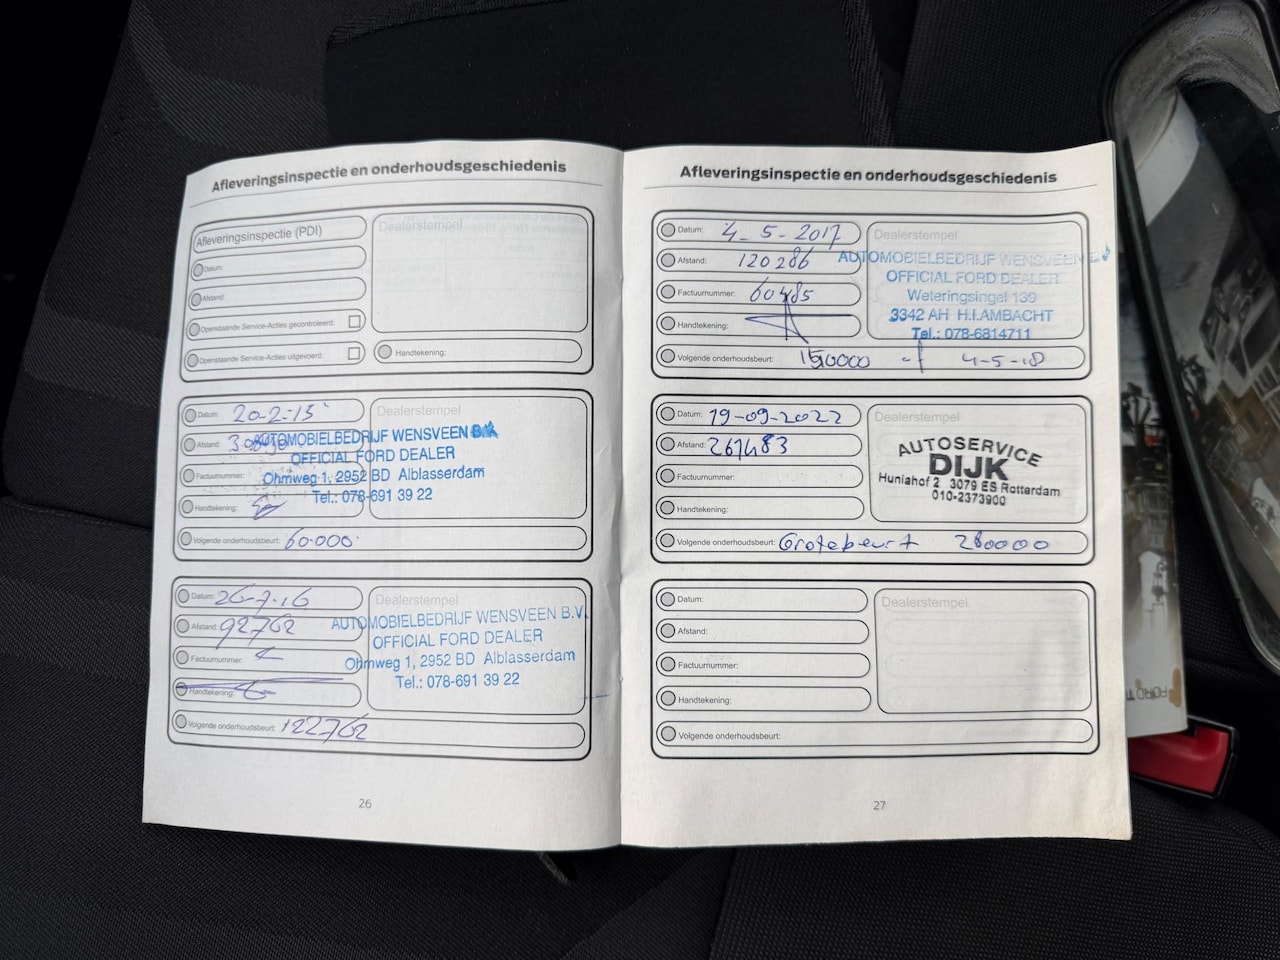 Afleveringsinspectie en onderhoudsgeschiedenis
Afleveringsinspectie (PDI)
Dealerstempel
Datum:
Afstand:
Openstaande Service-Acties gecontroleerd:
Openstaande Service-Acties uitgevoerd:
Handtekening:
Datum: 20-2-15
Dealerstempel
Afstand:
AUTOMOBIELBEDRIJF WENSVEEN B.V.
OFFICIAL FORD DEALER
Factuurnummer:
Ohmweg 1, 2952 BD Alblasserdam
Tel.: 078-691 39 22
Handtekening:
Volgende onderhoudsbeurt: 60.000
Datum: 26-7-16
Dealerstempel
Afstand: 92762
AUTOMOBIELBEDRIJF WENSVEEN B.V.
OFFICIAL FORD DEALER
Factuurnummer:
Ohmweg 1, 2952 BD Alblasserdam
Tel.: 078-691 39 22
Handtekening:
Volgende onderhoudsbeurt: 122762
26
Afleveringsinspectie en onderhoudsgeschiedenis
Datum: 4-5-2017
Dealerstempel
Afstand: 120286
AUTOMOBIELBEDRIJF WENSVEEN B.V.
OFFICIAL FORD DEALER
Factuurnummer: 60485
Weteringsingel 139
3342 AH H.I.AMBACHT
Handtekening:
Tel.: 078-6814711
Volgende onderhoudsbeurt: 150000 of 4-5-18
Datum: 19-09-2022
Dealerstempel
Afstand: 267483
AUTOSERVICE
DIJK
Huniahof 2 3079 ES Rotterdam
010-2373900
Factuurnummer:
Handtekening:
Volgende onderhoudsbeurt: Grotebeurt 280000
Datum:
Dealerstempel
Afstand:
Factuurnummer:
Handtekening:
Volgende onderhoudsbeurt:
27